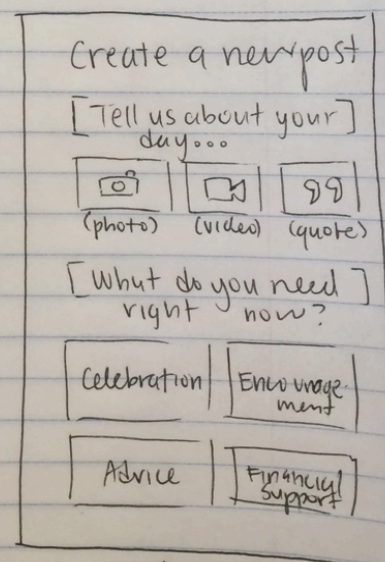 Create a new post
[Tell us about your]
day...
(photo) (video) (quote)
[What do you need]
right now?
Celebration Encourage-
ment
Advice Financial
Support